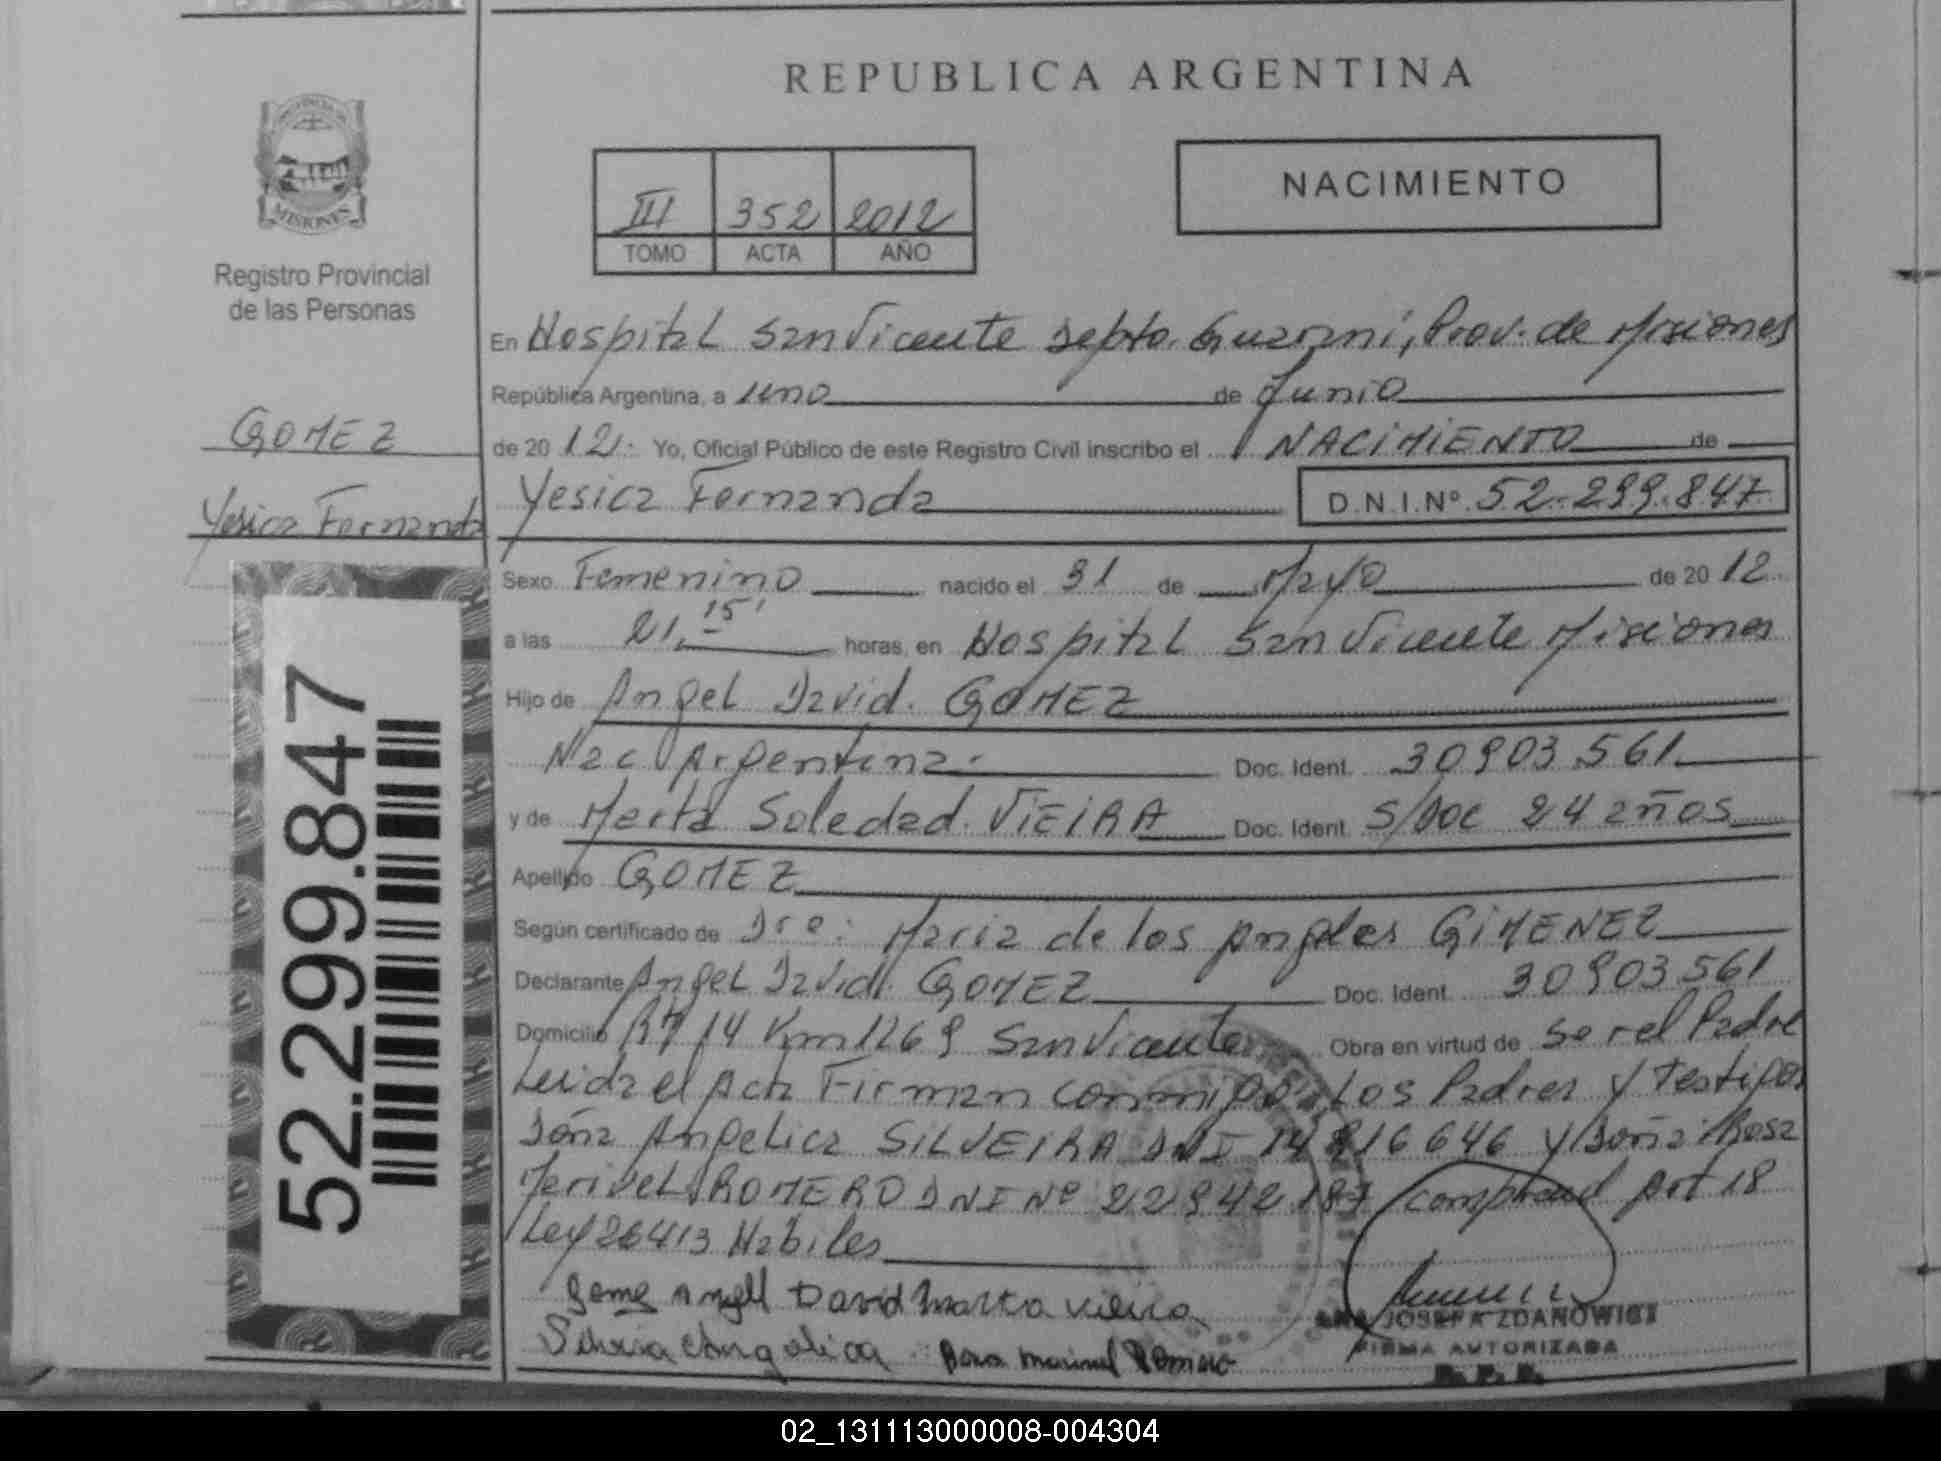 REPUBLICA ARGENTINA
NACIMIENTO
III 352 2012
TOMO ACTA AÑO
MISIONES
Registro Provincial
de las Personas
GOMEZ
Yesica Fernanda
52.299.847
En Hospital San Vicente Depto. Guarani, Prov. de Misiones
República Argentina, a uno de Junio
de 2012. Yo, Oficial Público de este Registro Civil inscribo el NACIMIENTO de
Yesica Fernanda D.N.I.Nº 52.299.847
Sexo Femenino nacido el 31 de Mayo de 2012
a las 21.15' horas, en Hospital San Vicente Misiones
Hijo de Angel David. GOMEZ
Nac Argentina. Doc. Ident. 30903.561
y de Marta Soledad. VIEIRA Doc. Ident. S/Doc 24 años
Apellido GOMEZ
Según certificado de Dra: Maria de los Angeles GIMENEZ
Declarante Angel David. GOMEZ Doc. Ident. 30903561
Domicilio Rta 14 Km 1269 San Vicente Obra en virtud de ser el Padre
Leida el Acta Firman conmigo Los Padres y Testigos
Doña Angelica SILVEIRA DNI 14816646 y Doña Rosa
Marivel ROMERO DNI Nº 22942187 Art 18
Ley 26413 Habiles
Angel David Marta Vieira
Angelica Rosa Romero
JOSEFA ZDANOWICZ
FIRMA AUTORIZADA
R. P. P.
02_131113000008-004304